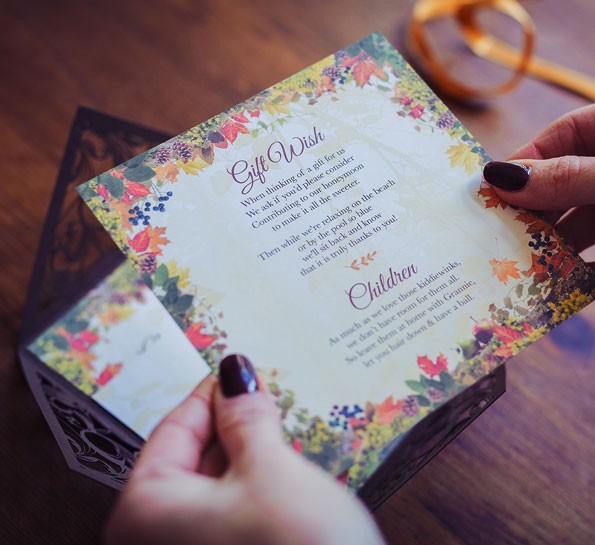 Gift Wish
When thinking of a gift for us
We ask if you'd please consider
Contributing to our honeymoon
to make it all the sweeter.
Then while we're relaxing on the beach
or by the pool so blue
we'll sit back and know
that it is truly thanks to you!
Children
As much as we love those kiddiewinks,
we don't have room for them all.
So leave them at home with Grannie,
let you hair down & have a ball.